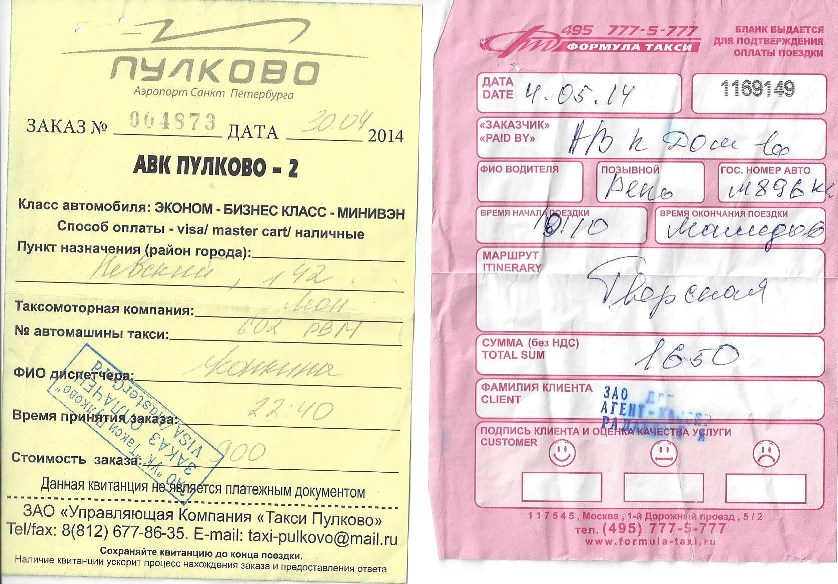 ПУЛКОВО
Аэропорт Санкт Петербурга
ЗАКАЗ № 004873 ДАТА 30.04 2014
АВК ПУЛКОВО – 2
Класс автомобиля: ЭКОНОМ - БИЗНЕС КЛАСС - МИНИВЭН
Способ оплаты - visa/ master cart/ наличные
Пункт назначения (район города):
Невский, 142
Таксомоторная компания:
№ автомашины такси: 602
ФИО диспетчера:
Время принятия заказа: 22:40
Стоимость заказа: 900
ЗАО "УК "Такси Пулково"
ЗАКАЗ ОПЛАЧЕН
VISA/Mastercard
Данная квитанция не является платежным документом
ЗАО «Управляющая Компания «Такси Пулково»
Tel/fax: 8(812) 677-86-35. E-mail: taxi-pulkovo@mail.ru
Сохраняйте квитанцию до конца поездки.
Наличие квитанции ускорит процесс нахождения заказа и предоставления ответа
495 777-5-777
ФОРМУЛА ТАКСИ
БЛАНК ВЫДАЕТСЯ
ДЛЯ ПОДТВЕРЖДЕНИЯ
ОПЛАТЫ ПОЕЗДКИ
ДАТА
DATE
4.05.14
1169149
«ЗАКАЗЧИК»
«PAID BY»
ФИО ВОДИТЕЛЯ
ПОЗЫВНОЙ
Рено
ГОС. НОМЕР АВТО
М896
ВРЕМЯ НАЧАЛА ПОЕЗДКИ
10
ВРЕМЯ ОКОНЧАНИЯ ПОЕЗДКИ
МАРШРУТ
ITINERARY
Тверская
СУММА (без НДС)
TOTAL SUM
1650
ФАМИЛИЯ КЛИЕНТА
CLIENT
ЗАО
АГЕНТ
ПОДПИСЬ КЛИЕНТА И ОЦЕНКА КАЧЕСТВА УСЛУГИ
CUSTOMER
117545, Москва, 1-й Дорожный проезд, 5/2
тел. (495) 777-5-777
www.formula-taxi.ru